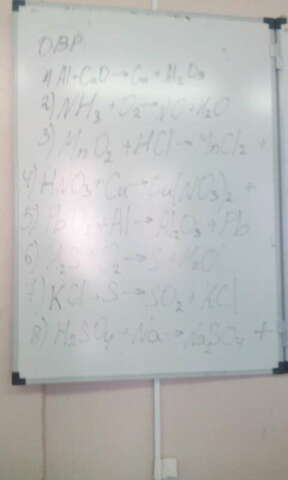 ОВР
1) Al+CuO→Cu+Al₂O₃
2) NH₃+O₂→NO+H₂O
3) MnO₂+HCl→MnCl₂+
4) HNO₃+Cu→Cu(NO₃)₂+
5) +Al→Al₂O₃+Pb
6)
7) +S→SO₂+KCl
8) H₂SO₄+Na→Na₂SO₄+